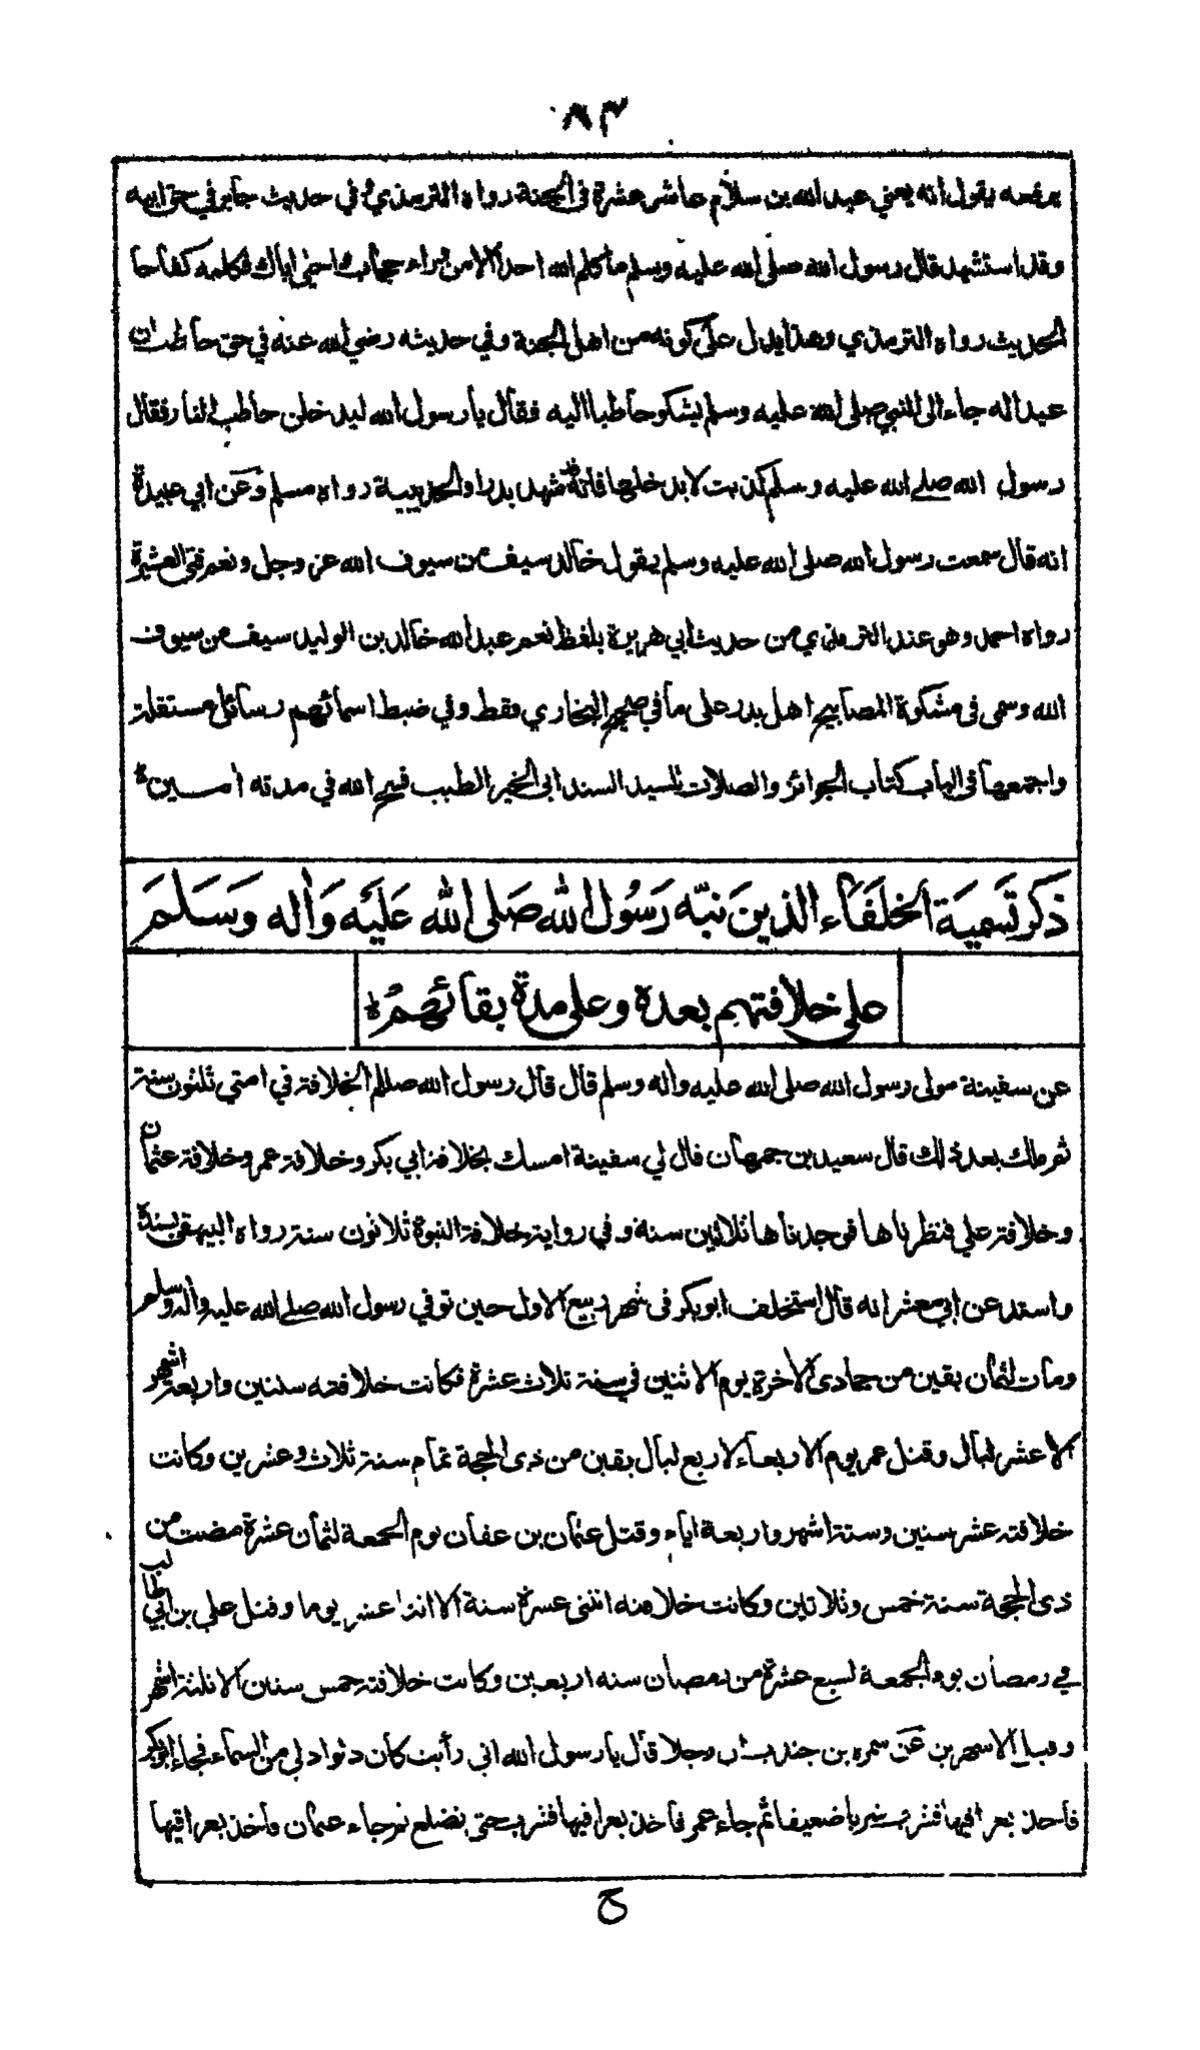 ٨٣
يرفعه يقول انه يعني عبد الله بن سلام عاشر عشرة في الجنة رواه الترمذي وفي حديث جابر في حق ابيه
وقد استشهد قال رسول الله صلى الله عليه وسلم ما كلم الله احدا الا من وراء حجاب واحيى اباك فكلمه كفاحا
الحديث رواه الترمذي وهذا يدل على كونه من اهل الجنة وفي حديثه رضي الله عنه في حق حاطب ان
عبدا له جاء الى النبي صلى الله عليه وسلم يشكو حاطبا اليه فقال يا رسول الله ليدخلن حاطب النار فقال
رسول الله صلے الله عليه وسلم كذبت لا يدخلها فانه قد شهد بدرا والحديبية رواه مسلم وعن ابي عبيدة
انه قال سمعت رسول الله صلى الله عليه وسلم يقول خالد سيف من سيوف الله عز وجل ونعم فتى العشيرة
رواه احمد وهو عند الترمذي من حديث ابي هريرة بلفظ نعم عبد الله خالد بن الوليد سيف من سيوف
الله وسمى في مشكوة المصابيح اهل بدر على ما في صحيح البخاري فقط وفي ضبط اسمائهم رسائل مستقلة
واجمعها في الباب كتاب الجوائز والصلات للسيد السند ابي الخير الطيب فسح الله في مدته امــين
ذكر تسمية الخلفاء الذين نبه رسول الله صلى الله عليه واله وسلم
على خلافتهم بعده وعلى مدة بقائهم
عن سفينة مولى رسول الله صلى الله عليه واله وسلم قال قال رسول الله صللم الخلافة في امتي ثلثون سنة
ثم ملك بعد ذلك قال سعيد بن جمهان قال لي سفينة امسك بخلافة ابي بكر وخلافة عمر وخلافة عثمان
وخلافة علي فنظرناها فوجدناها ثلاثين سنة وفي رواية خلافة النبوة ثلاثون سنة رواه البيهقي بسنده
واسند عن ابي معشر انه قال استخلف ابو بكر في شهر ربيع الاول حين توفي رسول الله صلے الله عليه واله وسلم
ومات لثمان بقين من جمادى الاخرة يوم الاثنين في سنة ثلاث عشرة فكانت خلافته سنتين واربعة اشهر
الا عشر ليال وقتل عمر يوم الاربعاء لاربع ليال بقين من ذي الحجة تمام سنة ثلاث وعشرين وكانت
خلافته عشر سنين وستة اشهر واربعة ايام وقتل عثمان بن عفان يوم الجمعة لثمان عشرة مضت من
ذي الحجة سنة خمس وثلاثين وكانت خلافته اثنتى عشرة سنة الا اثنا عشر يوما وقتل علي بن ابي طالب
في رمضان يوم الجمعة لسبع عشرة من رمضان سنه اربعين وكانت خلافته خمس سنين الا ثلثة اشهر
وقيل الا شهرين عن سمره بن جندب ان رجلا قال يا رسول الله اني رأيت كأن دلوا دلي من السماء فجاء ابو بكر
فاخذ بعراقيها فشرب شربا ضعيفا ثم جاء عمر فاخذ بعراقيها فشرب حتى تضلع ثم جاء عثمان فاخذ بعراقيها
ح